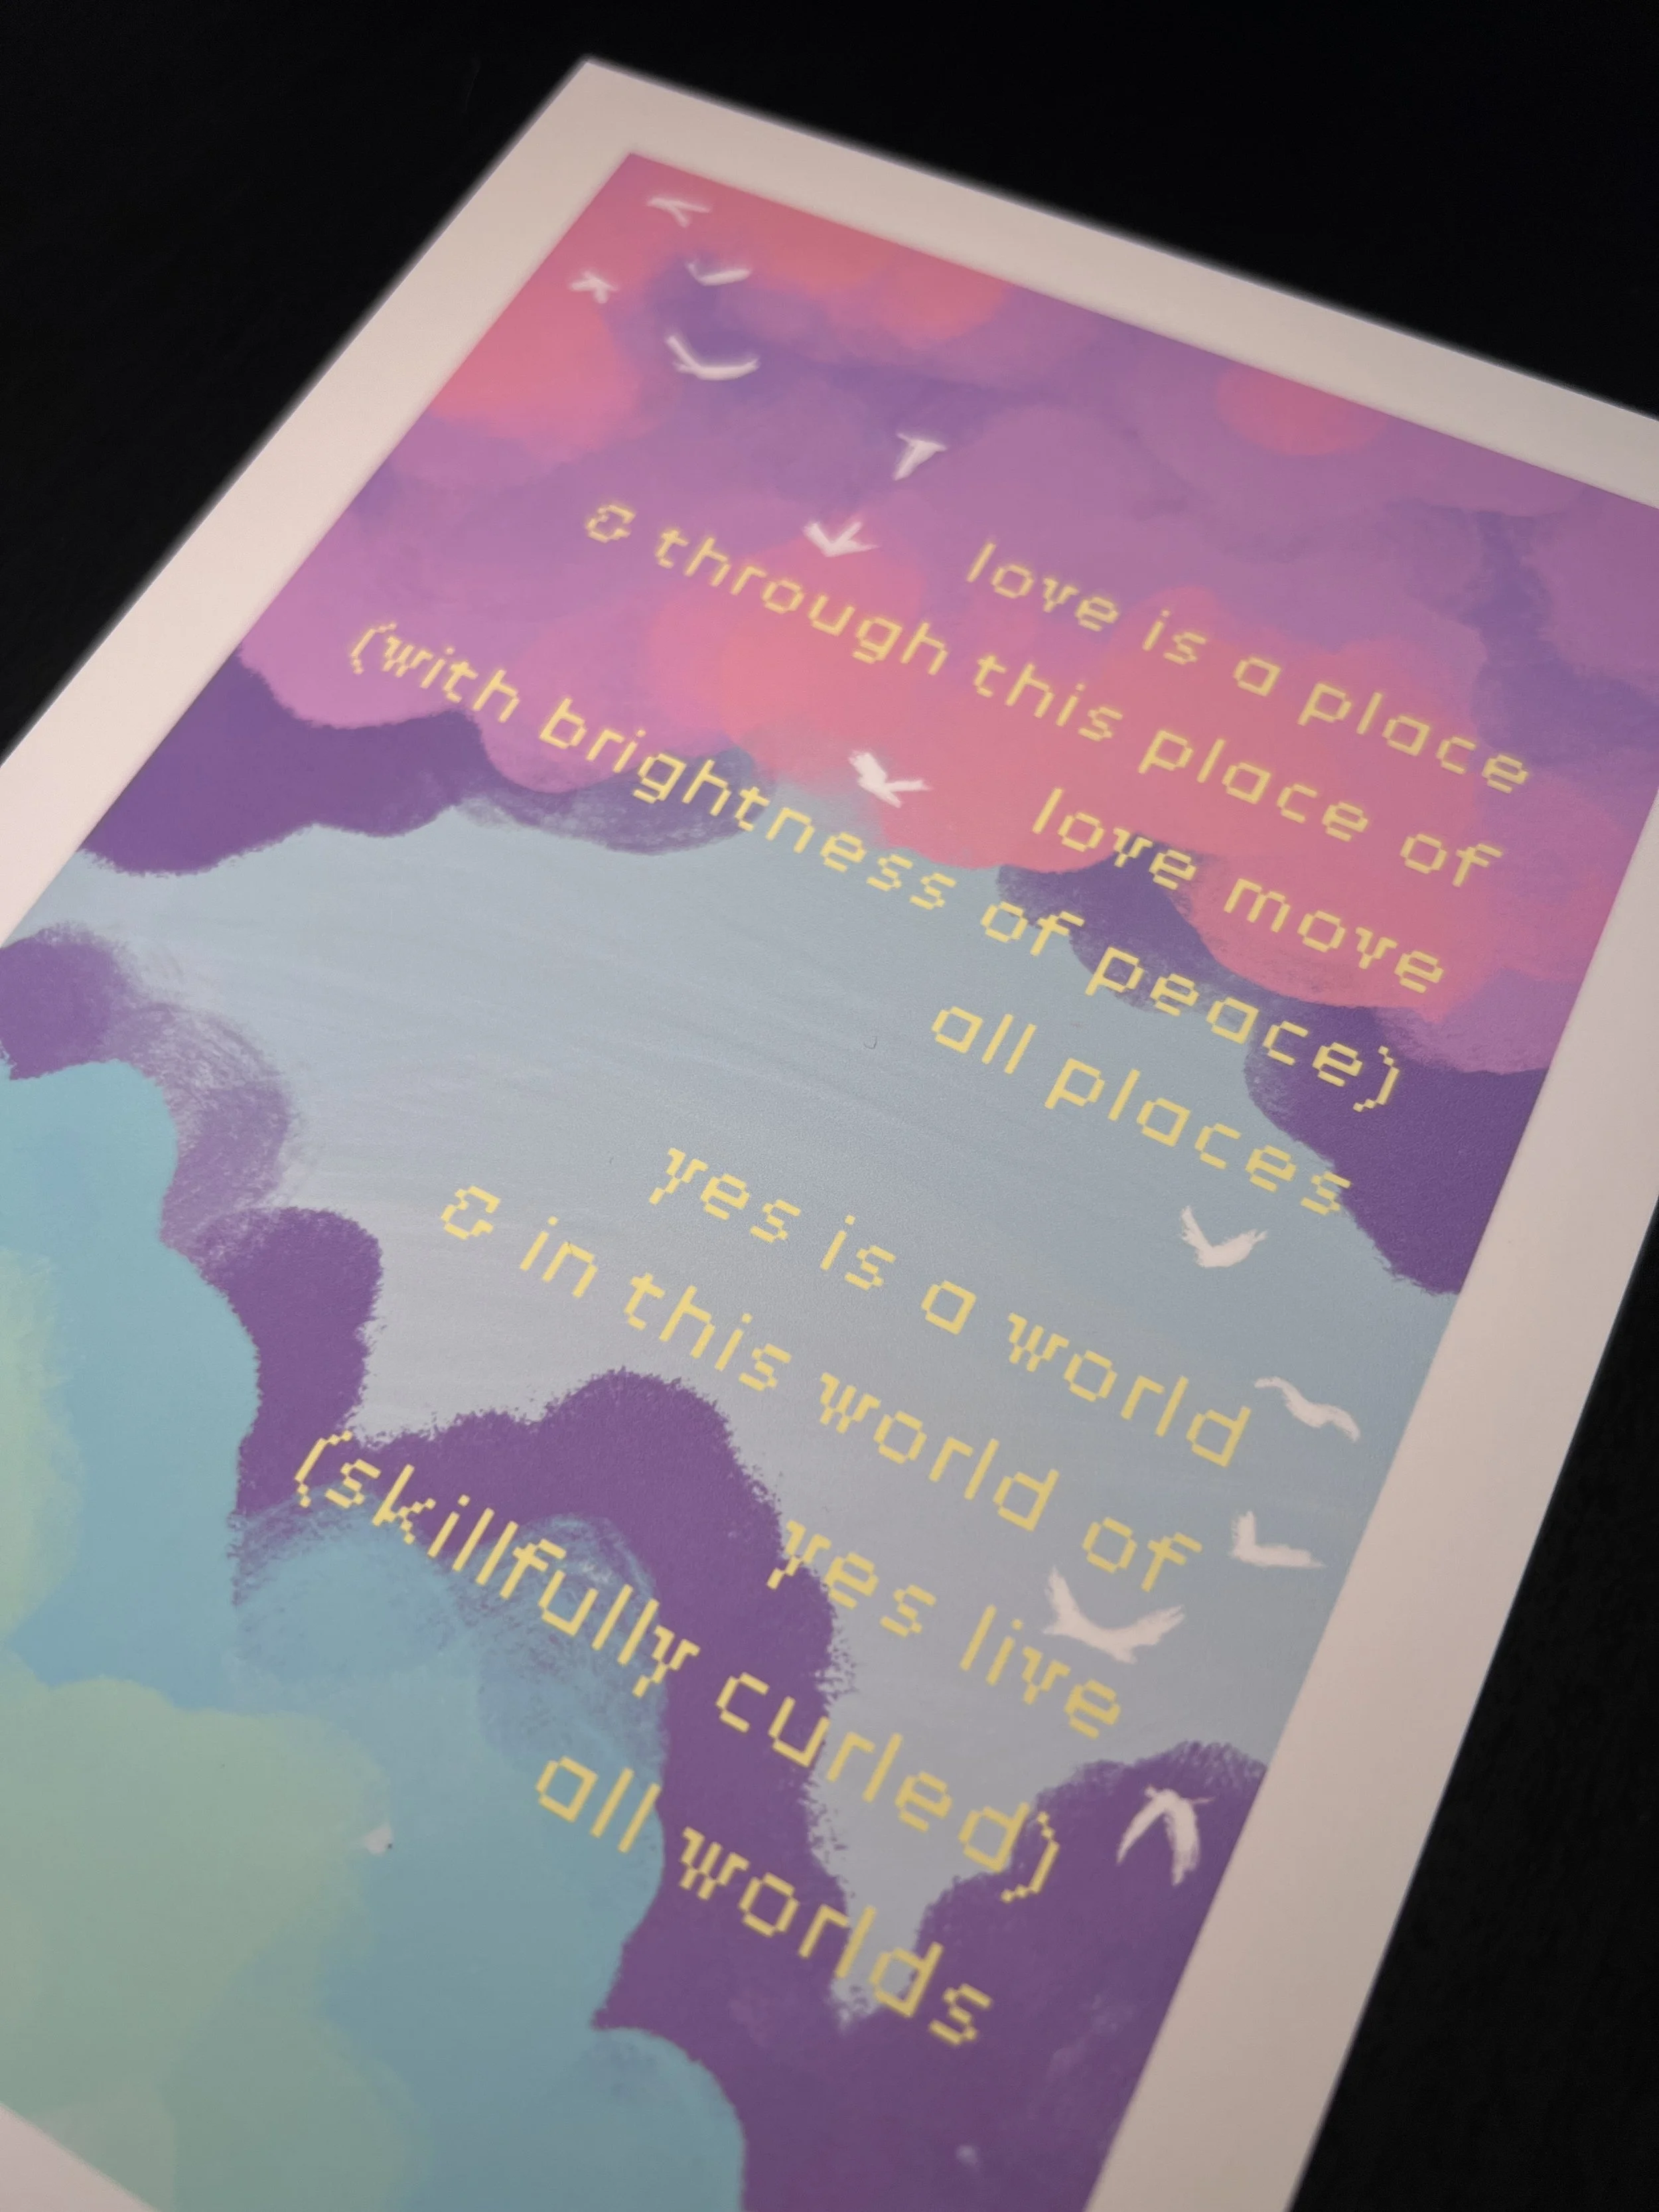 love is a place
& through this place of
love move
(with brightness of peace)
all places
yes is a world
& in this world of
yes live
(skillfully curled)
all worlds